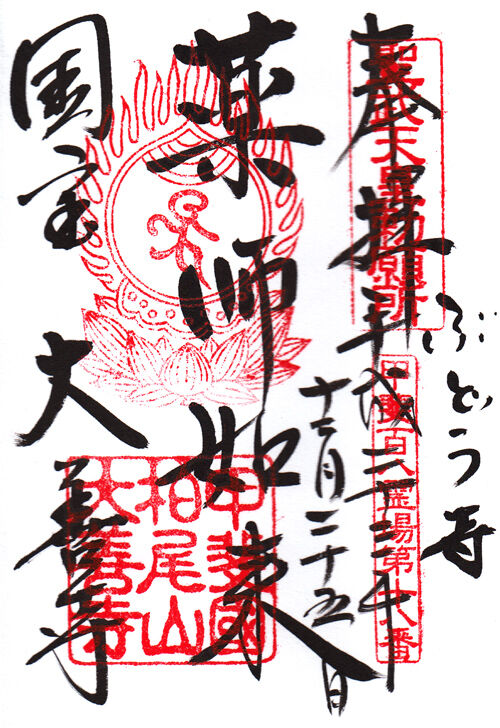 ぶどう寺
奉拝
平成二十三年
十二月二十五日
聖武天皇勅願所
甲斐百八霊場第十八番
薬師如来
国宝 大善寺
甲斐國
柏尾山
大善寺